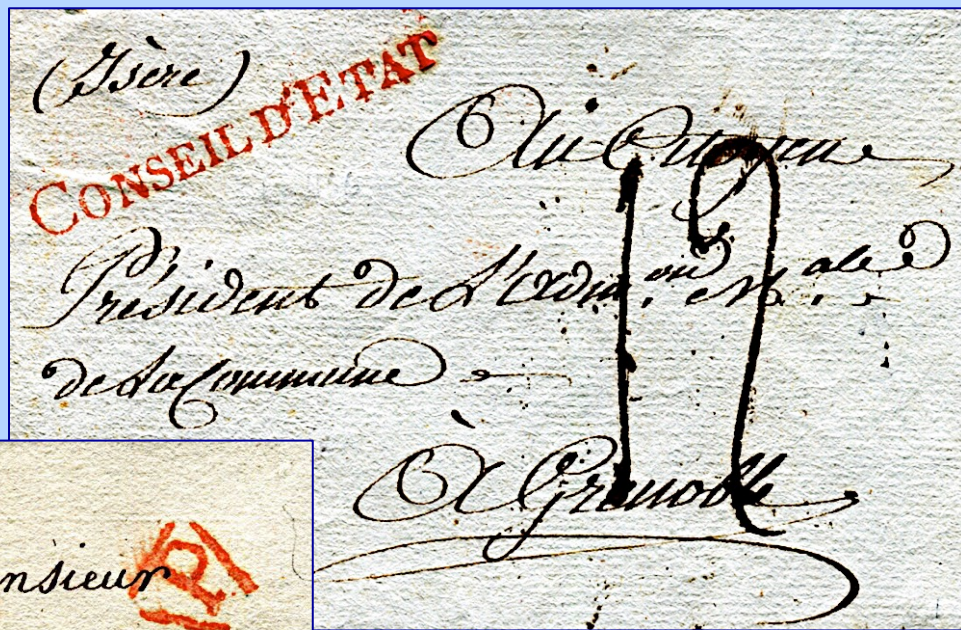 (Isère)
CONSEIL D'ETAT
Au Citoyen
Président de L'adm.on M.ale
de la Commune
À Grenoble
nsieur
P